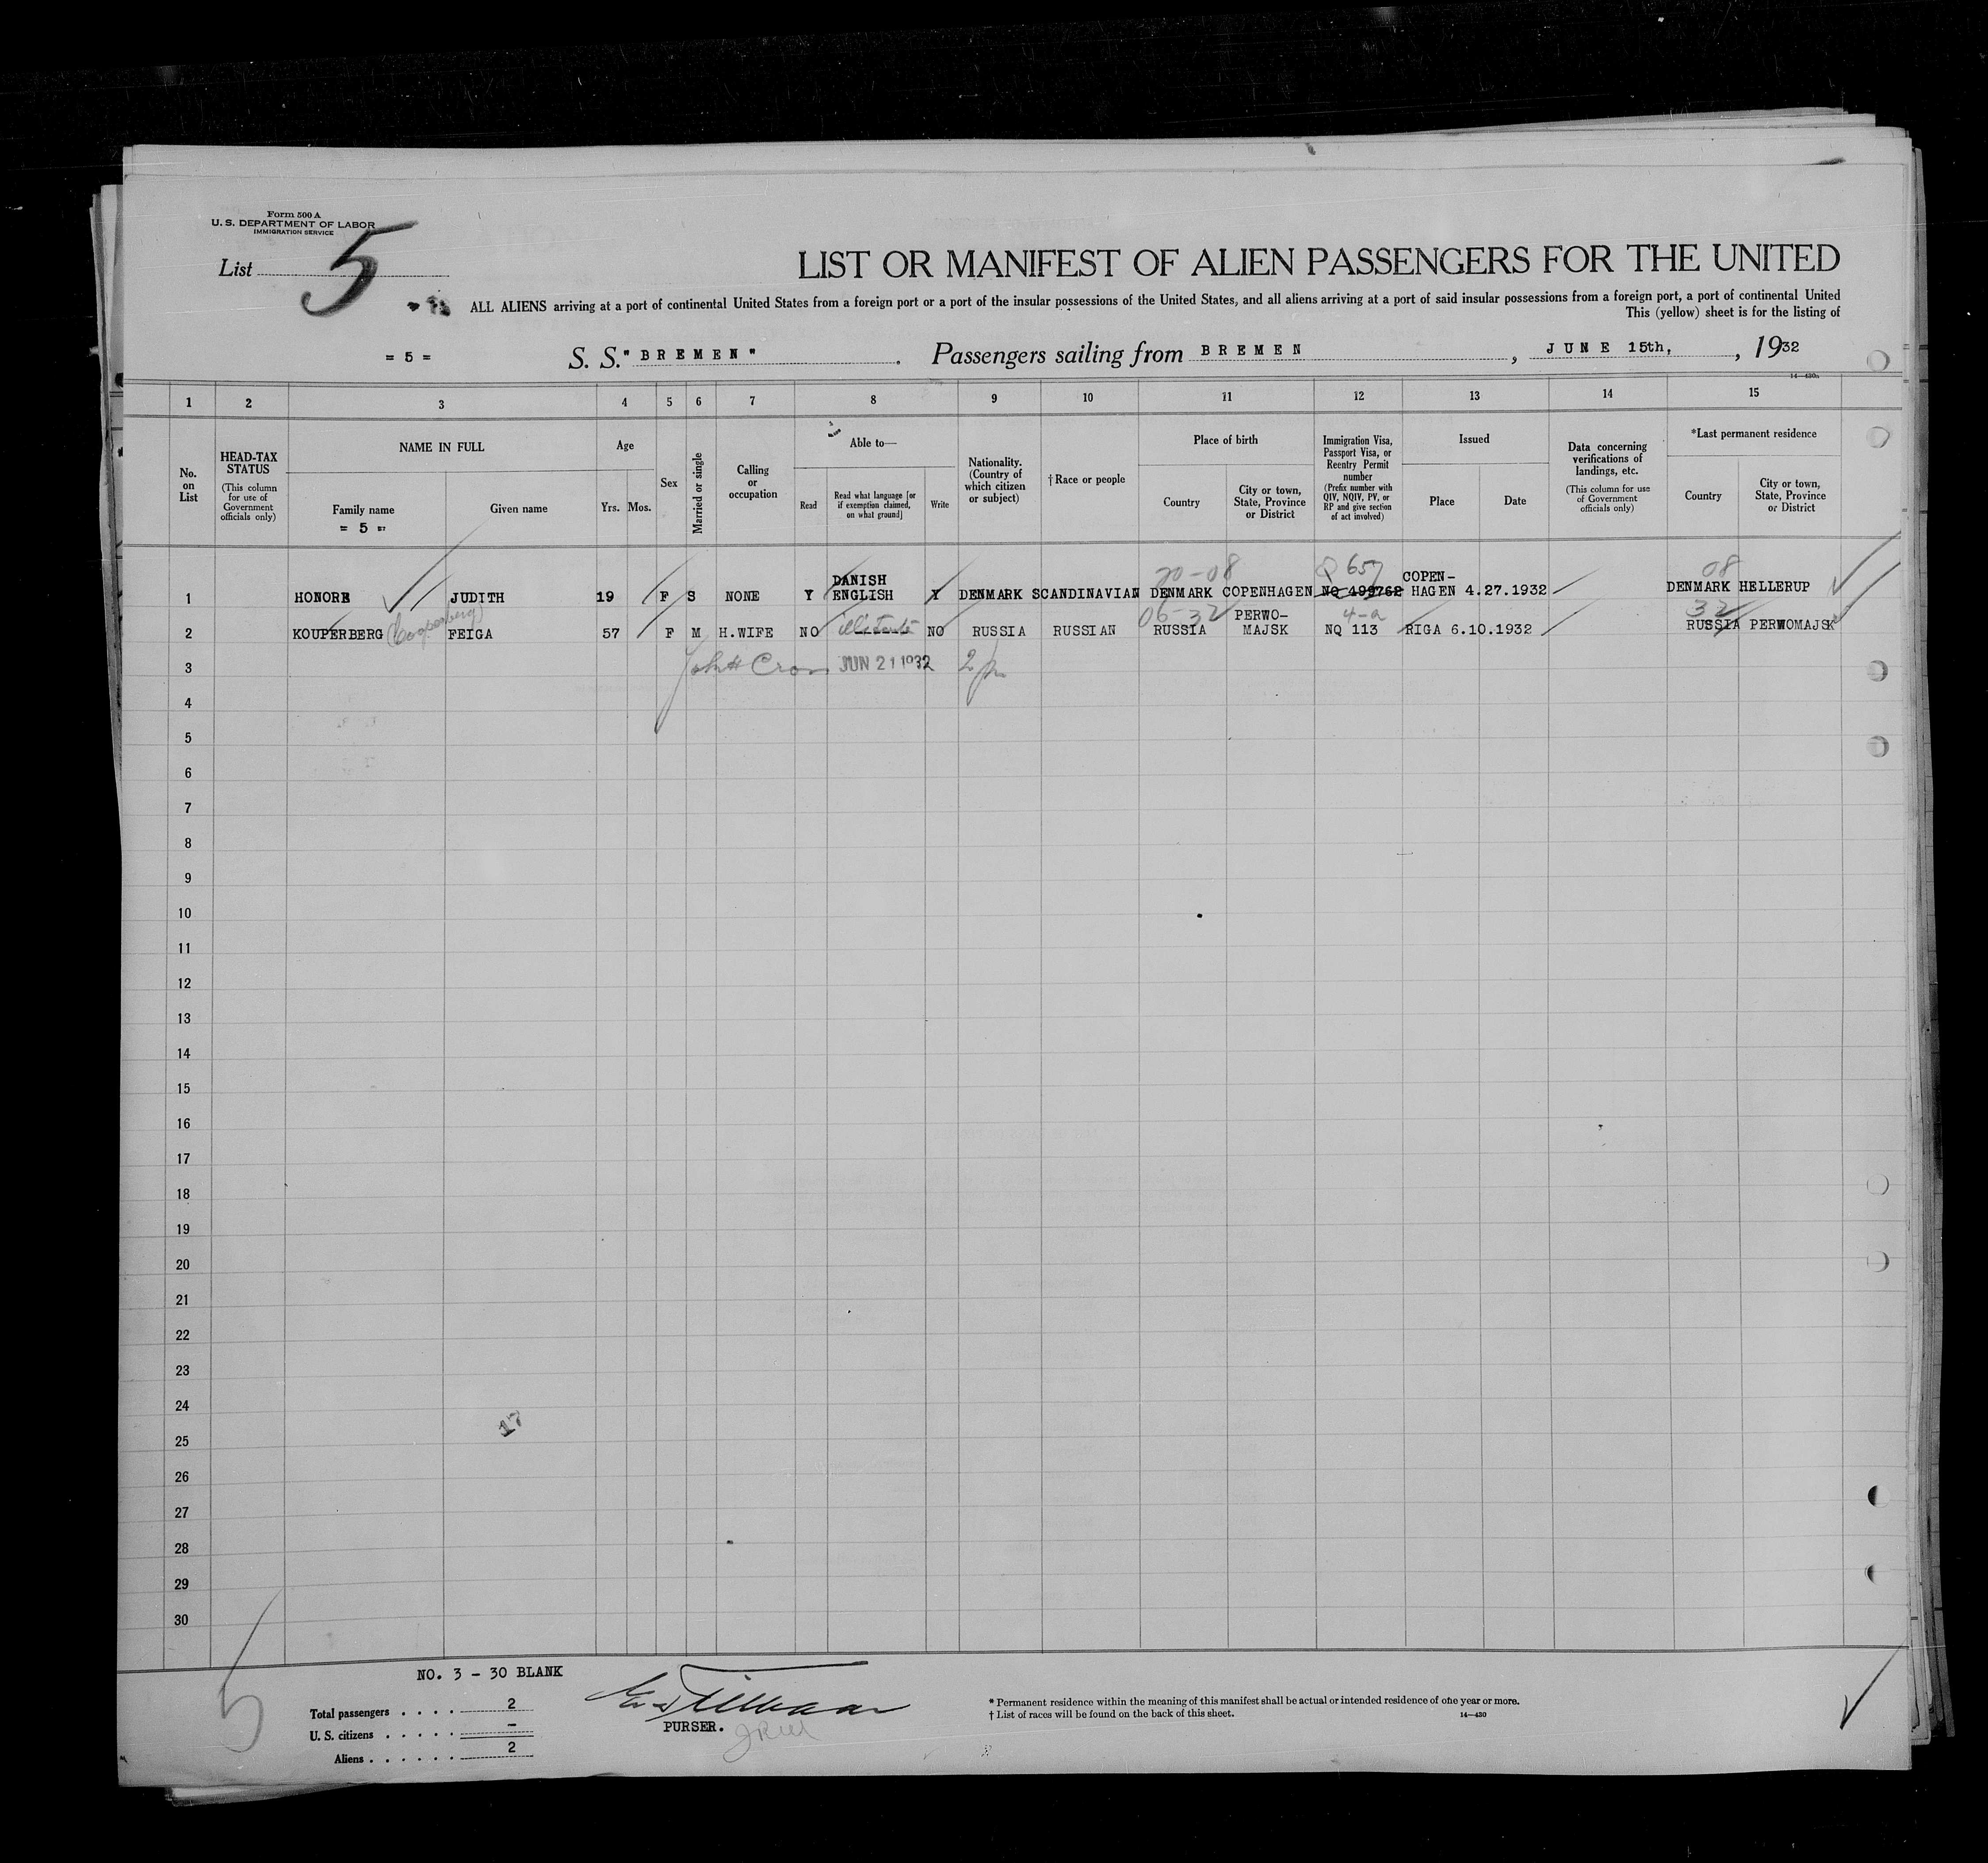 Form 500 A
U. S. DEPARTMENT OF LABOR
IMMIGRATION SERVICE
List 5
LIST OR MANIFEST OF ALIEN PASSENGERS FOR THE UNITED
ALL ALIENS arriving at a port of continental United States from a foreign port or a port of the insular possessions of the United States, and all aliens arriving at a port of said insular possessions from a foreign port, a port of continental United
This (yellow) sheet is for the listing of
= 5 = S. S. "BREMEN" . Passengers sailing from BREMEN , JUNE 15th, , 1932
14—430a
1 2 3 4 5 6 7 8 9 10 11 12 13 14 15
No. on List
HEAD-TAX STATUS (This column for use of Government officials only)
NAME IN FULL
Family name = 5 =
Given name
Age
Yrs. Mos.
Sex
Married or single
Calling or occupation
Able to—
Read
Read what language [or if exemption claimed, on what ground]
Write
Nationality. (Country of which citizen or subject)
† Race or people
Place of birth
Country
City or town, State, Province or District
Immigration Visa, Passport Visa, or Reentry Permit number (Prefix number with QIV, NQIV, PV, or RP and give section of act involved)
Issued
Place
Date
Data concerning verifications of landings, etc. (This column for use of Government officials only)
*Last permanent residence
Country
City or town, State, Province or District
20-08 Q 657 08
1 HONORE JUDITH 19 F S NONE Y DANISH ENGLISH Y DENMARK SCANDINAVIAN DENMARK COPENHAGEN NQ 499762 COPEN-HAGEN 4.27.1932 DENMARK HELLERUP
06-32 4-a 32
2 KOUPERBERG (Cooperberg) FEIGA 57 F M H.WIFE NO NO RUSSIA RUSSIAN RUSSIA PERWO-MAJSK NQ 113 RIGA 6.10.1932 RUSSIA PERWOMAJSK
3 John H Cron JUN 21 1932
4
5
6
7
8
9
10
11
12
13
14
15
16
17
18
19
20
21
22
23
24
17
25
26
27
28
29
30
5
NO. 3 - 30 BLANK
Total passengers . . . . 2
U. S. citizens . . . . . –
Aliens . . . . . . 2
PURSER.
* Permanent residence within the meaning of this manifest shall be actual or intended residence of one year or more.
† List of races will be found on the back of this sheet. 14—430